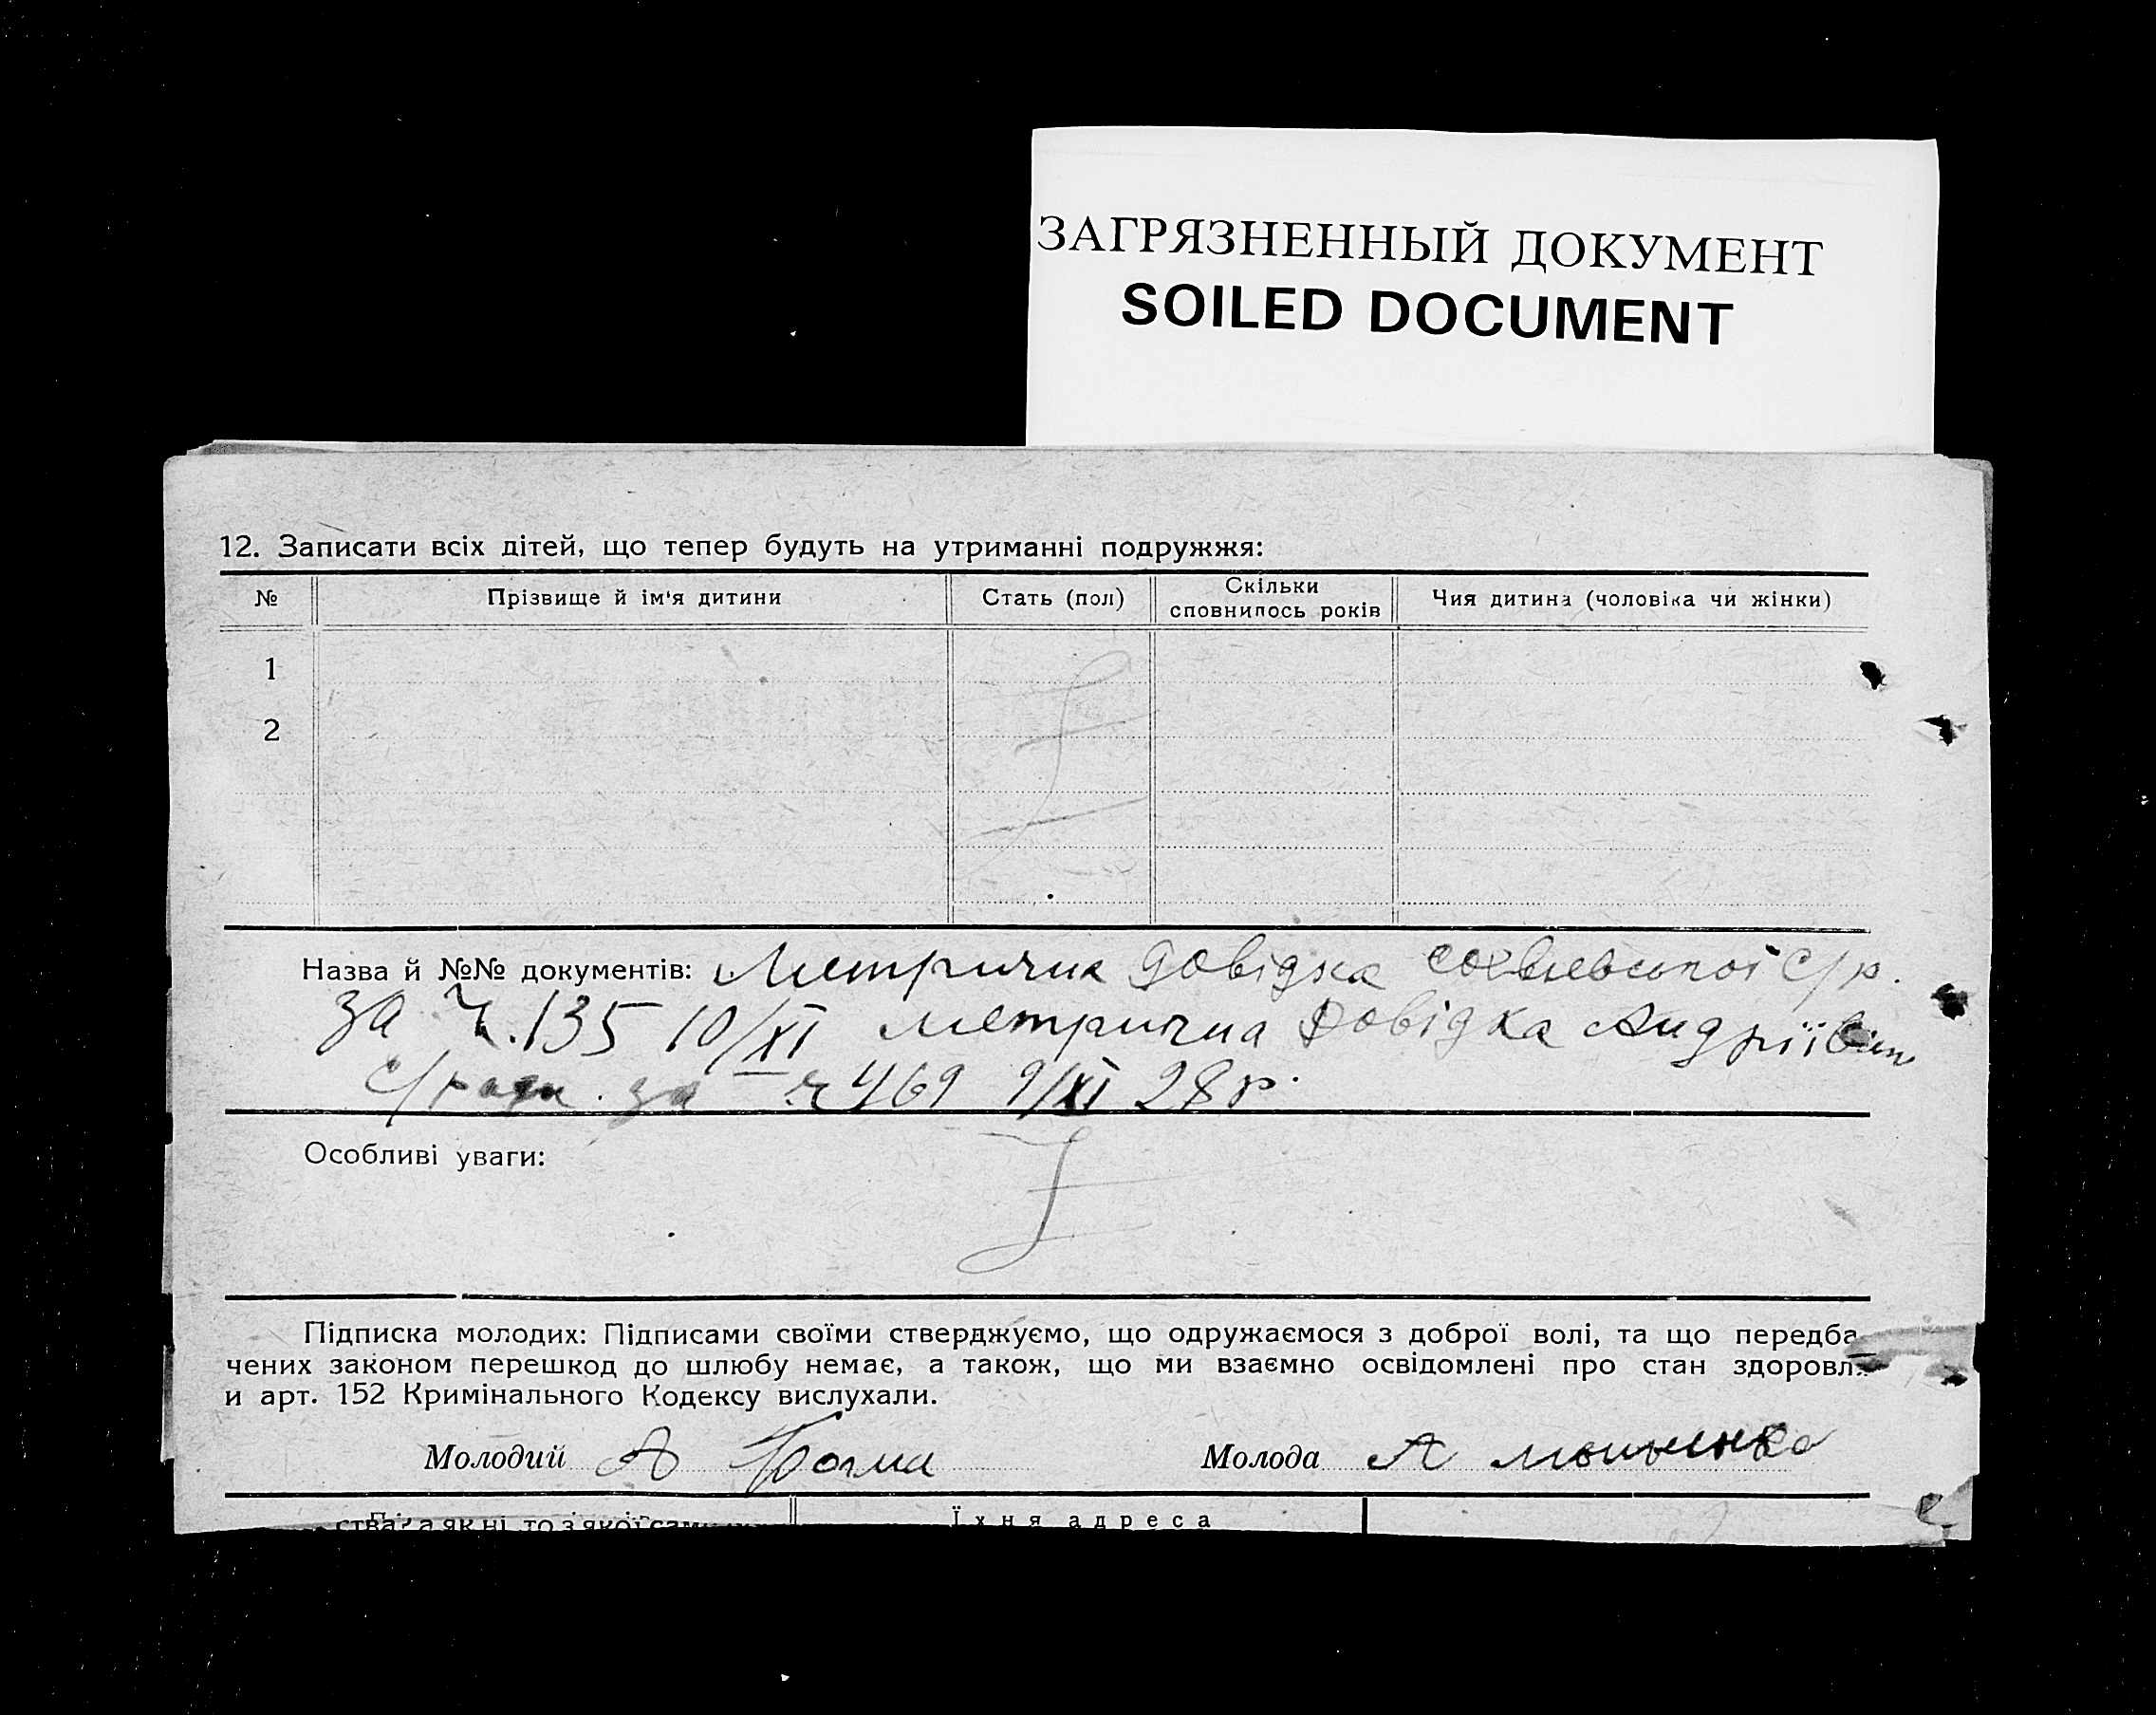 ЗАГРЯЗНЕННЫЙ ДОКУМЕНТ
SOILED DOCUMENT
12. Записати всіх дітей, що тепер будуть на утриманні подружжя:
№ Прізвище й ім'я дитини Стать (пол) Скільки сповнилось років Чия дитина (чоловіка чи жінки)
1
2
Назва й №№ документів: Метрична довідка с/р.
за ч. 135 10/XI метрична довідка
с/ради за ч 469 9/XI 28 р.
Особливі уваги:
Підписка молодих: Підписами своїми стверджуємо, що одружаємося з доброї волі, та що передба
чених законом перешкод до шлюбу немає, а також, що ми взаємно освідомлені про стан здоровл
и арт. 152 Кримінального Кодексу вислухали.
Молодий А Богма Молода А
ства? а як ні, то з якої сам
Їхня адреса